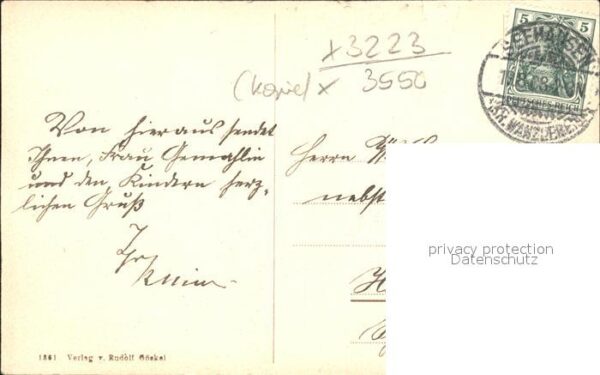 x 3223
(Kopie) x 3550
5 5
SEEHAUSEN
DEUTSCHES REICH
(KR. WANZLEBEN)
Von hieraus sendet
Ihnen, Frau Gemahlin
und den Kindern herz-
lichen Gruß
Ihr
Herrn
nebst
privacy protection
Datenschutz
1861 Verlag v. Rudolf Göckel